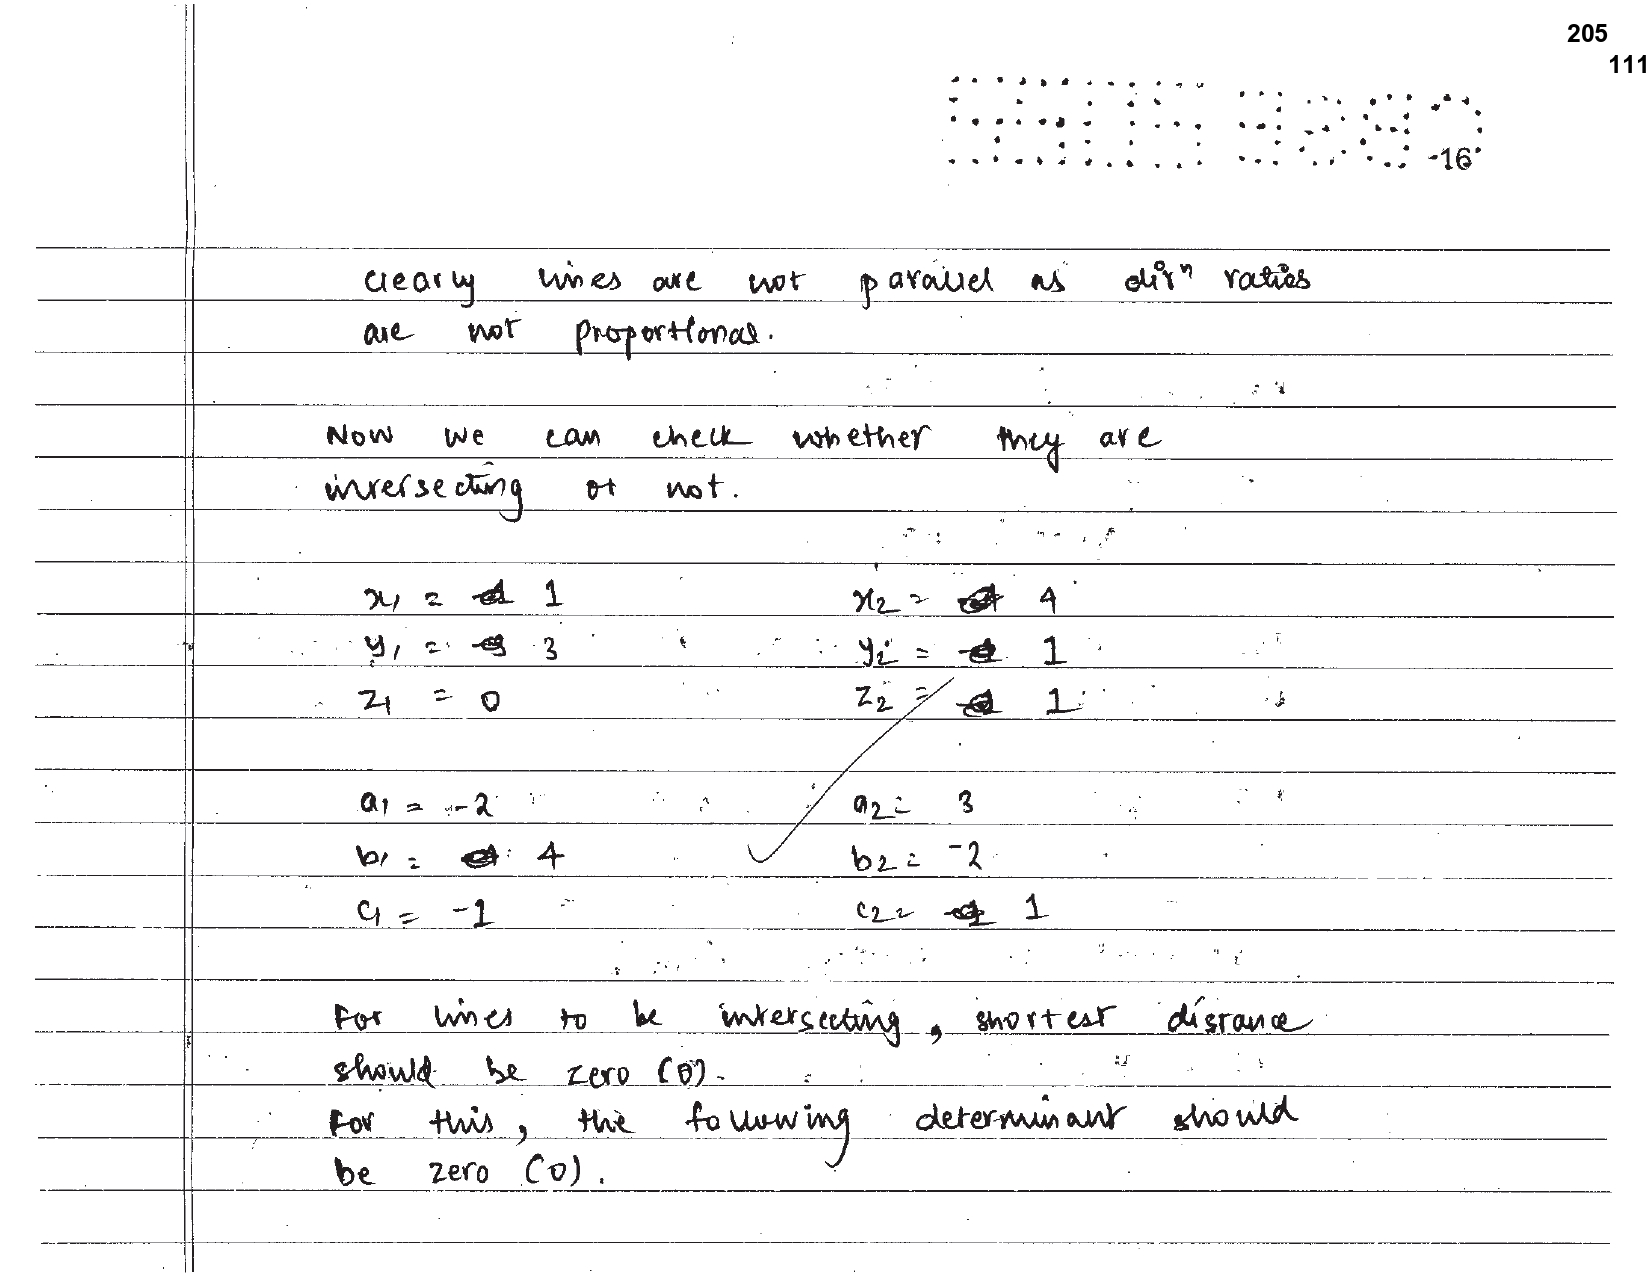 205
111
-16
clearly lines are not parallel as dirⁿ ratios
are not proportional.
Now we can check whether they are
intersecting or not.
x₁ = 1 x₂ = 4
y₁ = 3 y₂ = 1
z₁ = 0 z₂ = 1
a₁ = -2 a₂ = 3
b₁ = 4 b₂ = -2
c₁ = -1 c₂ = 1
For lines to be intersecting, shortest distance
should be zero (0).
For this, the following determinant should
be zero (0).